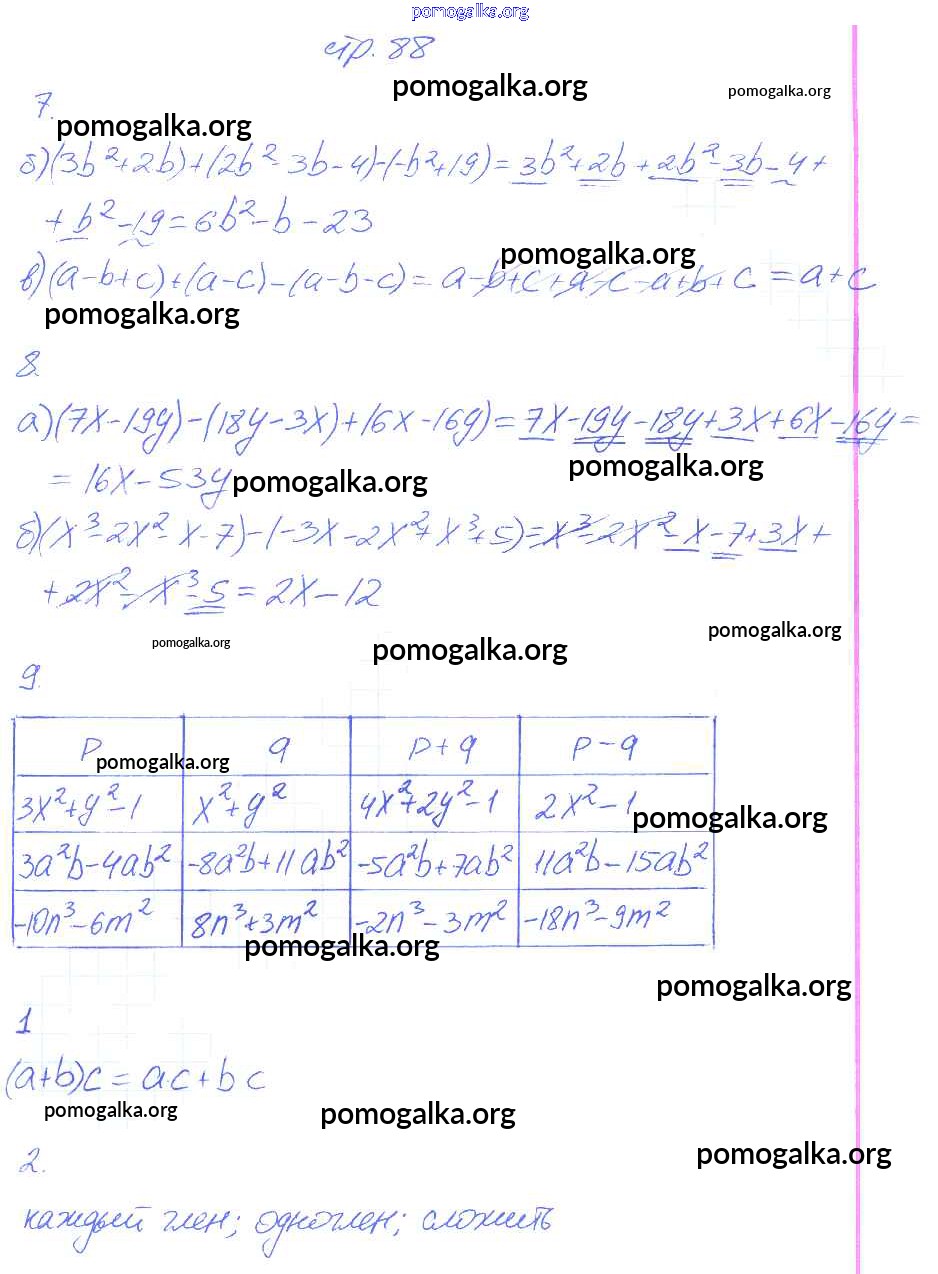 pomogalka.org
стр. 88
pomogalka.org
pomogalka.org
7.
pomogalka.org
б) (3b²+2b)+(2b²-3b-4)-(-b²+19)=3b²+2b+2b²-3b-4+
+b²-19=6b²-b-23
pomogalka.org
в) (a-b+c)+(a-c)-(a-b-c)=a-b+c+a-c-a+b+c=a+c
pomogalka.org
8.
а) (7x-19y)-(18y-3x)+(6x-16y)=7x-19y-18y+3x+6x-16y=
pomogalka.org
=16x-53y
pomogalka.org
б) (x³-2x²-x-7)-(-3x-2x²+x³+5)=x³-2x²-x-7+3x+
+2x²-x³-5=2x-12
pomogalka.org
pomogalka.org
pomogalka.org
9.
p q p+q p-q
pomogalka.org
3x²+y²-1 x²+y² 4x²+2y²-1 2x²-1
pomogalka.org
3a²b-4ab² -8a²b+11ab² -5a²b+7ab² 11a²b-15ab²
-10n³-6m² 8n³+3m² -2n³-3m² -18n³-9m²
pomogalka.org
pomogalka.org
1
(a+b)c=ac+bc
pomogalka.org
pomogalka.org
pomogalka.org
2.
каждый член; одночлен; сложить